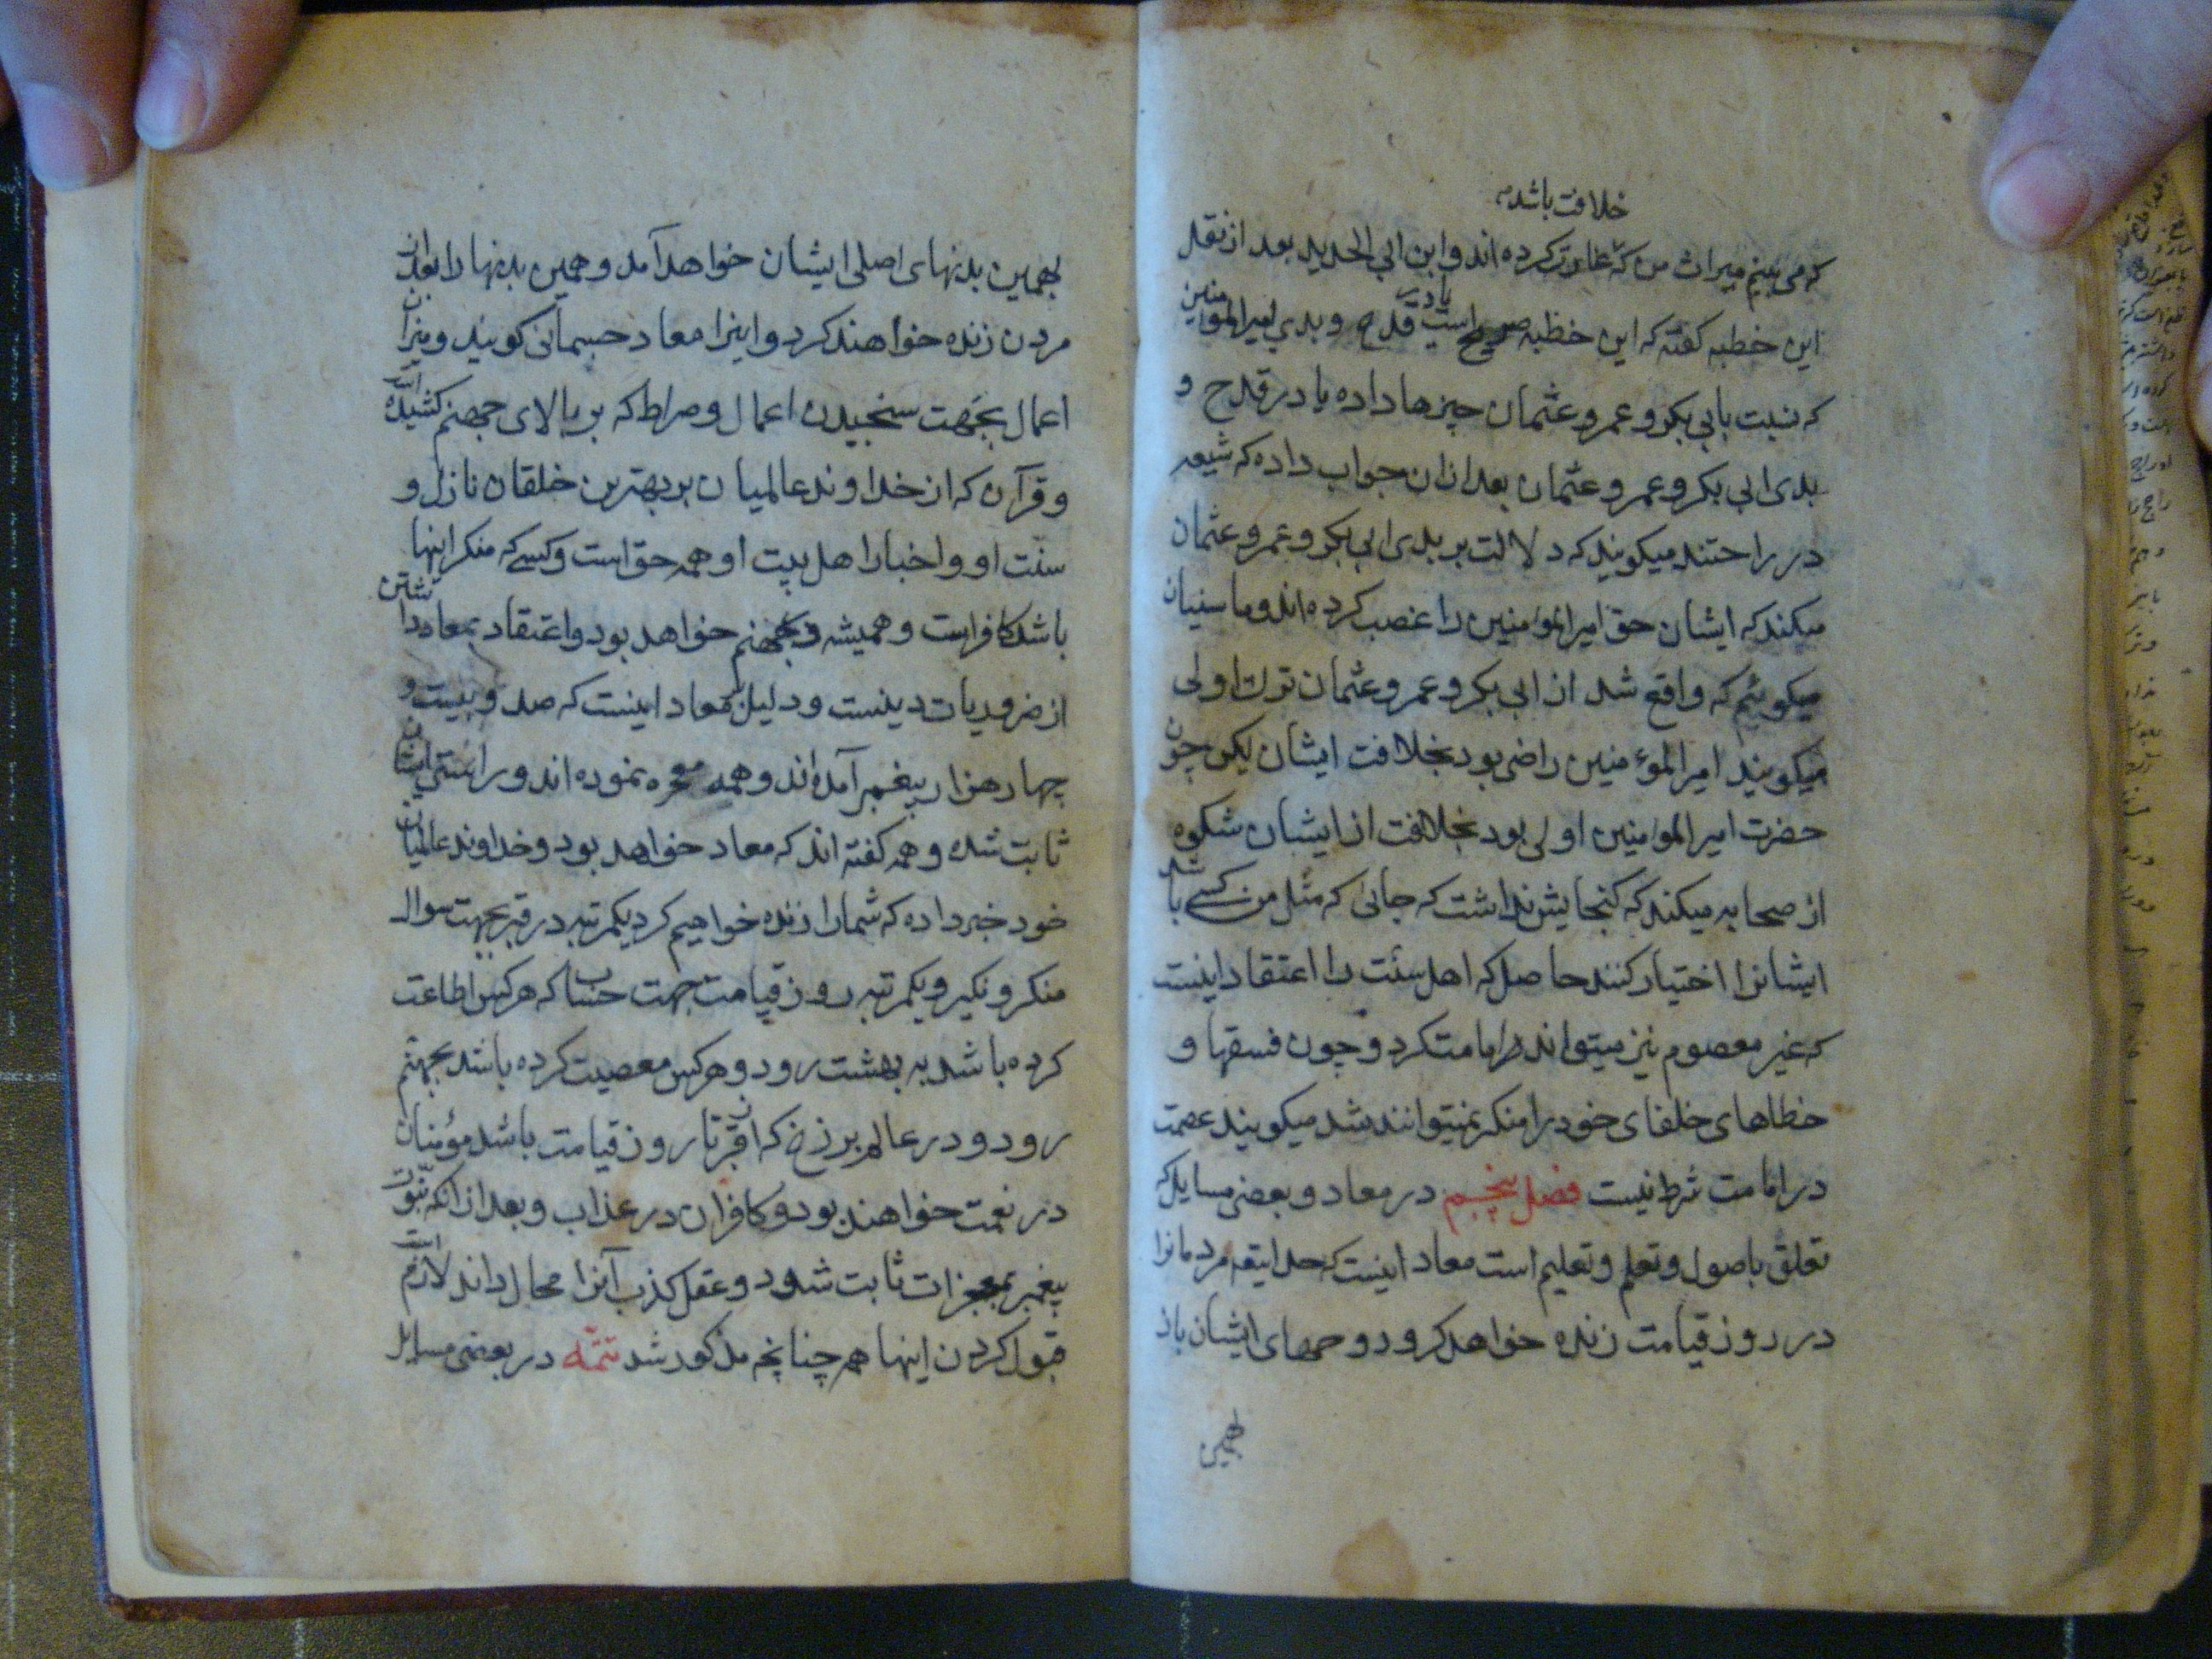 خلافت باشد
که می بینم میراث من که غارت کرده اند و ابن ابی الحدید بعد از نقل
این خطبه کفته که این خطبه صحیح است یا در قدح و بدی امیرالمؤمنین
که نسبت بابی بکر و عمر و عثمان چیزها داده یا در قدح و
بدی ابی بکر و عمر و عثمان بعد ازان جواب داده که شیعه
در راحتند میکویند که دلالت بر بدی ابی بکر و عمر و عثمان
میکند که ایشان حق امیرالمؤمنین را غصب کرده اند و ما سنیان
میکوییم که واقع شد از ابی بکر و عمر و عثمان ترك اولی
میکویند امیرالمؤمنین راضی بود بخلافت ایشان لیکن چون
حضرت امیرالمؤمنین اولی بود بخلافت از ایشان شکوه
از صحابه میکند که کنجایش نداشت که جائی که مثل من کسی باشد
ایشانرا اختیار کنند حاصل که اهل سنت را اعتقاد اینست
که غیر معصوم نیز میتواند امامت کرد و چون فسقها و
خطاهای خلفای خود را منکر نمیتوانند شد میکویند عصمت
در امامت شرط نیست فصل پنجم در معاد و بعضی مسایل که
تعلق باصول و تعلم و تعلیم است معاد اینست که حقتعالی مردمانرا
در روز قیامت زنده خواهد کرد و روحهای ایشان باز
بهمین
بهمین بدنهای اصلی ایشان خواهد آمد و همین بدنها را بعد از
مردن زنده خواهند کرد و اینرا معاد جسمانی کویند و میزان
اعمال بجهت سنجیدن اعمال و صراط که بر بالای جهنم کشیده است
و قرآن که از خداوند عالمیان بر بهترین خلقان نازل و
سنت او و اخبار اهل بیت او همه حق است و کسی که منکر اینها
باشد کافر است و همیشه در جهنم خواهد بود و اعتقاد بمعاد داشتن
از ضروریات دینست و دلیل معاد اینست که صد و بیست و
چهار هزار پیغمبر آمده اند و همه معجزه نموده اند و راستی ایشان
ثابت شده و همه کفته اند که معاد خواهد بود و خداوند عالمیان
خود خبر داده که شما را زنده خواهیم کرد یکمرتبه در قبر بجهت سوال
منکر و نکیر و یکمرتبه روز قیامت جهت حساب که هر کس اطاعت
کرده باشد به بهشت رود و هر کس معصیت کرده باشد بجهنم
رود و در عالم برزخ که از قبر تا روز قیامت باشد مؤمنان
در نعمت خواهند بود و کافران در عذاب و بعد ازانکه نبوت
پیغمبر بمعجزات ثابت شود و عقل کذب آنرا محال داند لازم است
قبول کردن اینها هم چنانچه مذکور شد تتمّه در بعضی مسایل